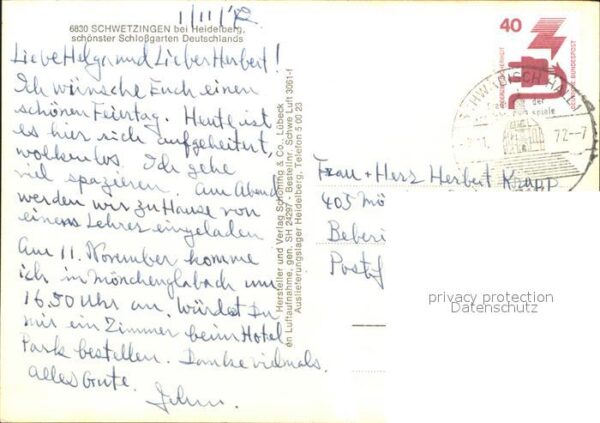 1/11/72
6830 SCHWETZINGEN bei Heidelberg,
schönster Schloßgarten Deutschlands
Liebe Helga und Lieber Herbert!
Ich wünsche Euch einen
schönen Feiertag. Heute ist
es hier sich aufgeheitert,
wolkenlos. Ich gehe
viel spazieren. Am Abend
werden wir zu Hause von
einem Lehrer eingeladen
Am 11. November komme
ich in Mönchenglabach um
16.50 Uhr an. Würdest Du
mir ein Zimmer beim Hotel
Park bestellen. Danke vielmals.
Alles Gute.
John.
Hersteller und Verlag Schöning & Co., Lübeck
en Luftaufnahme, gen. SH 24297 - Bestellnr. Schwe Luft 3061-f
Auslieferungslager Heidelberg, Telefon 5 00 23
40
DEUTSCHE BUNDESPOST
SCHWÄBISCH HALL
der
spiele
72.--7
Frau + Herr Herbert Krapp
405 Mö
Beberi
Postf
privacy protection
Datenschutz